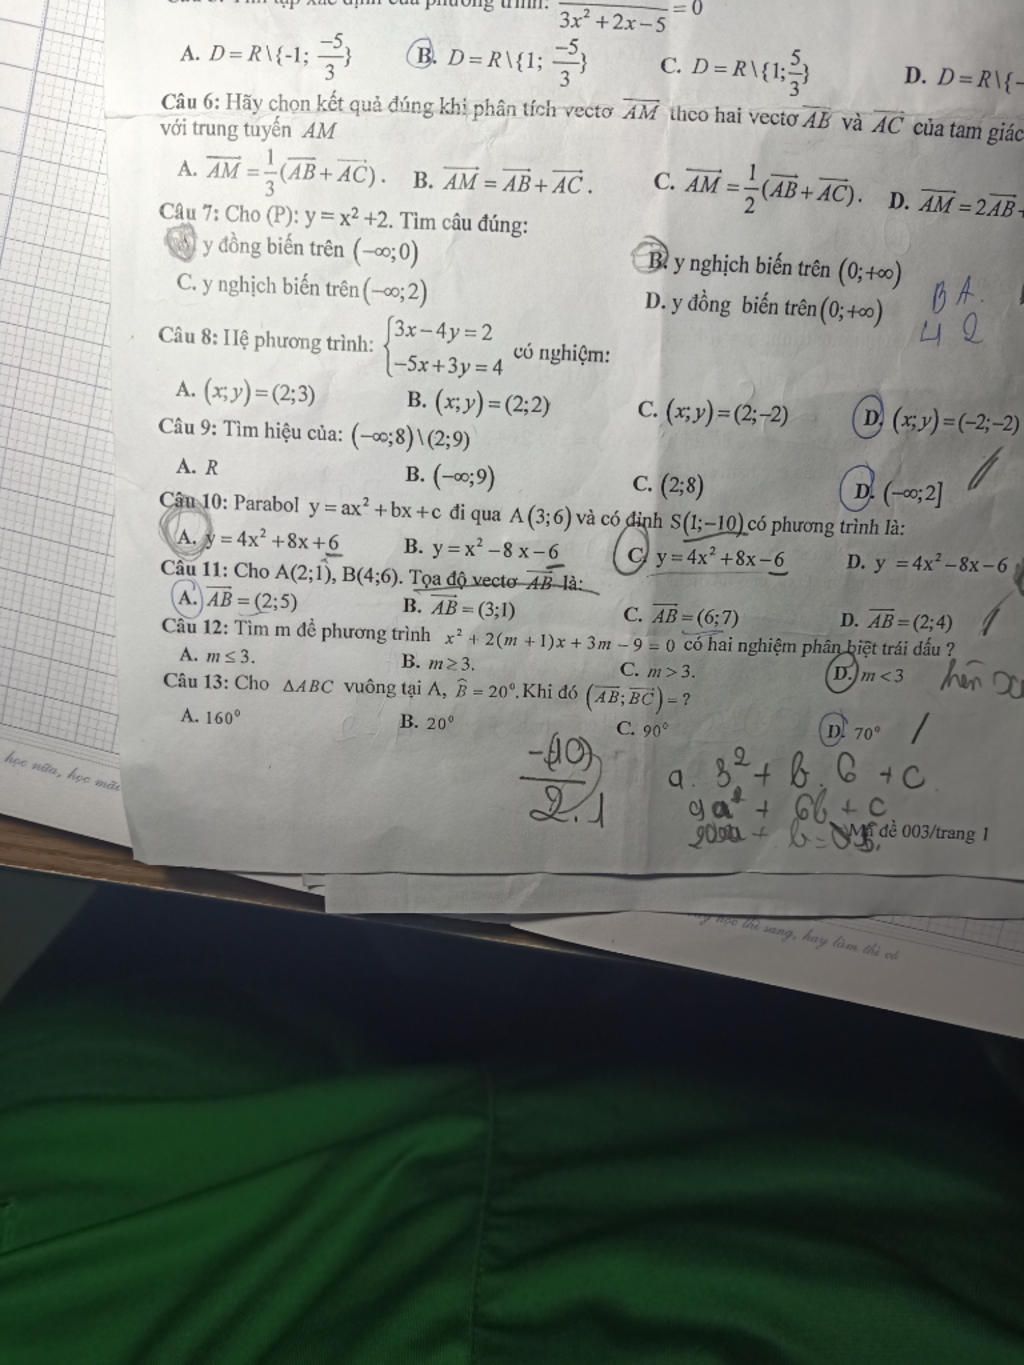 3x² + 2x − 5 = 0
A. D = R\{-1; −5/3} B. D = R\{1; −5/3} C. D = R\{1; 5/3} D. D = R\{−
Câu 6: Hãy chọn kết quả đúng khi phân tích vectơ AM theo hai vectơ AB và AC của tam giác
với trung tuyến AM
A. AM = 1/3(AB + AC). B. AM = AB + AC. C. AM = 1/2(AB + AC). D. AM = 2AB +
Câu 7: Cho (P): y = x² +2. Tìm câu đúng:
y đồng biến trên (−∞;0) B. y nghịch biến trên (0;+∞)
C. y nghịch biến trên (−∞;2) D. y đồng biến trên (0;+∞)
B A.
4 2
Câu 8: Hệ phương trình: {3x − 4y = 2
−5x + 3y = 4 có nghiệm:
A. (x;y) = (2;3) B. (x;y) = (2;2) C. (x;y) = (2;−2) D. (x;y) = (−2;−2)
Câu 9: Tìm hiệu của: (−∞;8)\(2;9)
A. R B. (−∞;9) C. (2;8) D. (−∞;2]
Câu 10: Parabol y = ax² + bx + c đi qua A(3;6) và có đỉnh S(1;−10) có phương trình là:
A. y = 4x² + 8x + 6 B. y = x² − 8 x − 6 C. y = 4x² + 8x − 6 D. y = 4x² − 8x − 6
Câu 11: Cho A(2;1), B(4;6). Tọa độ vectơ AB là:
A. AB = (2;5) B. AB = (3;1) C. AB = (6;7) D. AB = (2;4)
Câu 12: Tìm m để phương trình x² + 2(m + 1)x + 3m − 9 = 0 có hai nghiệm phân biệt trái dấu ?
A. m ≤ 3. B. m ≥ 3. C. m > 3. D. m < 3
Câu 13: Cho ΔABC vuông tại A, B̂ = 20°. Khi đó (AB; BC) = ?
A. 160° B. 20° C. 90° D. 70°
a. 3² + b. 6 + c
9a² + 6b + c
2.1
Mã đề 003/trang 1
học nữa, học mãi
hay làm thì có